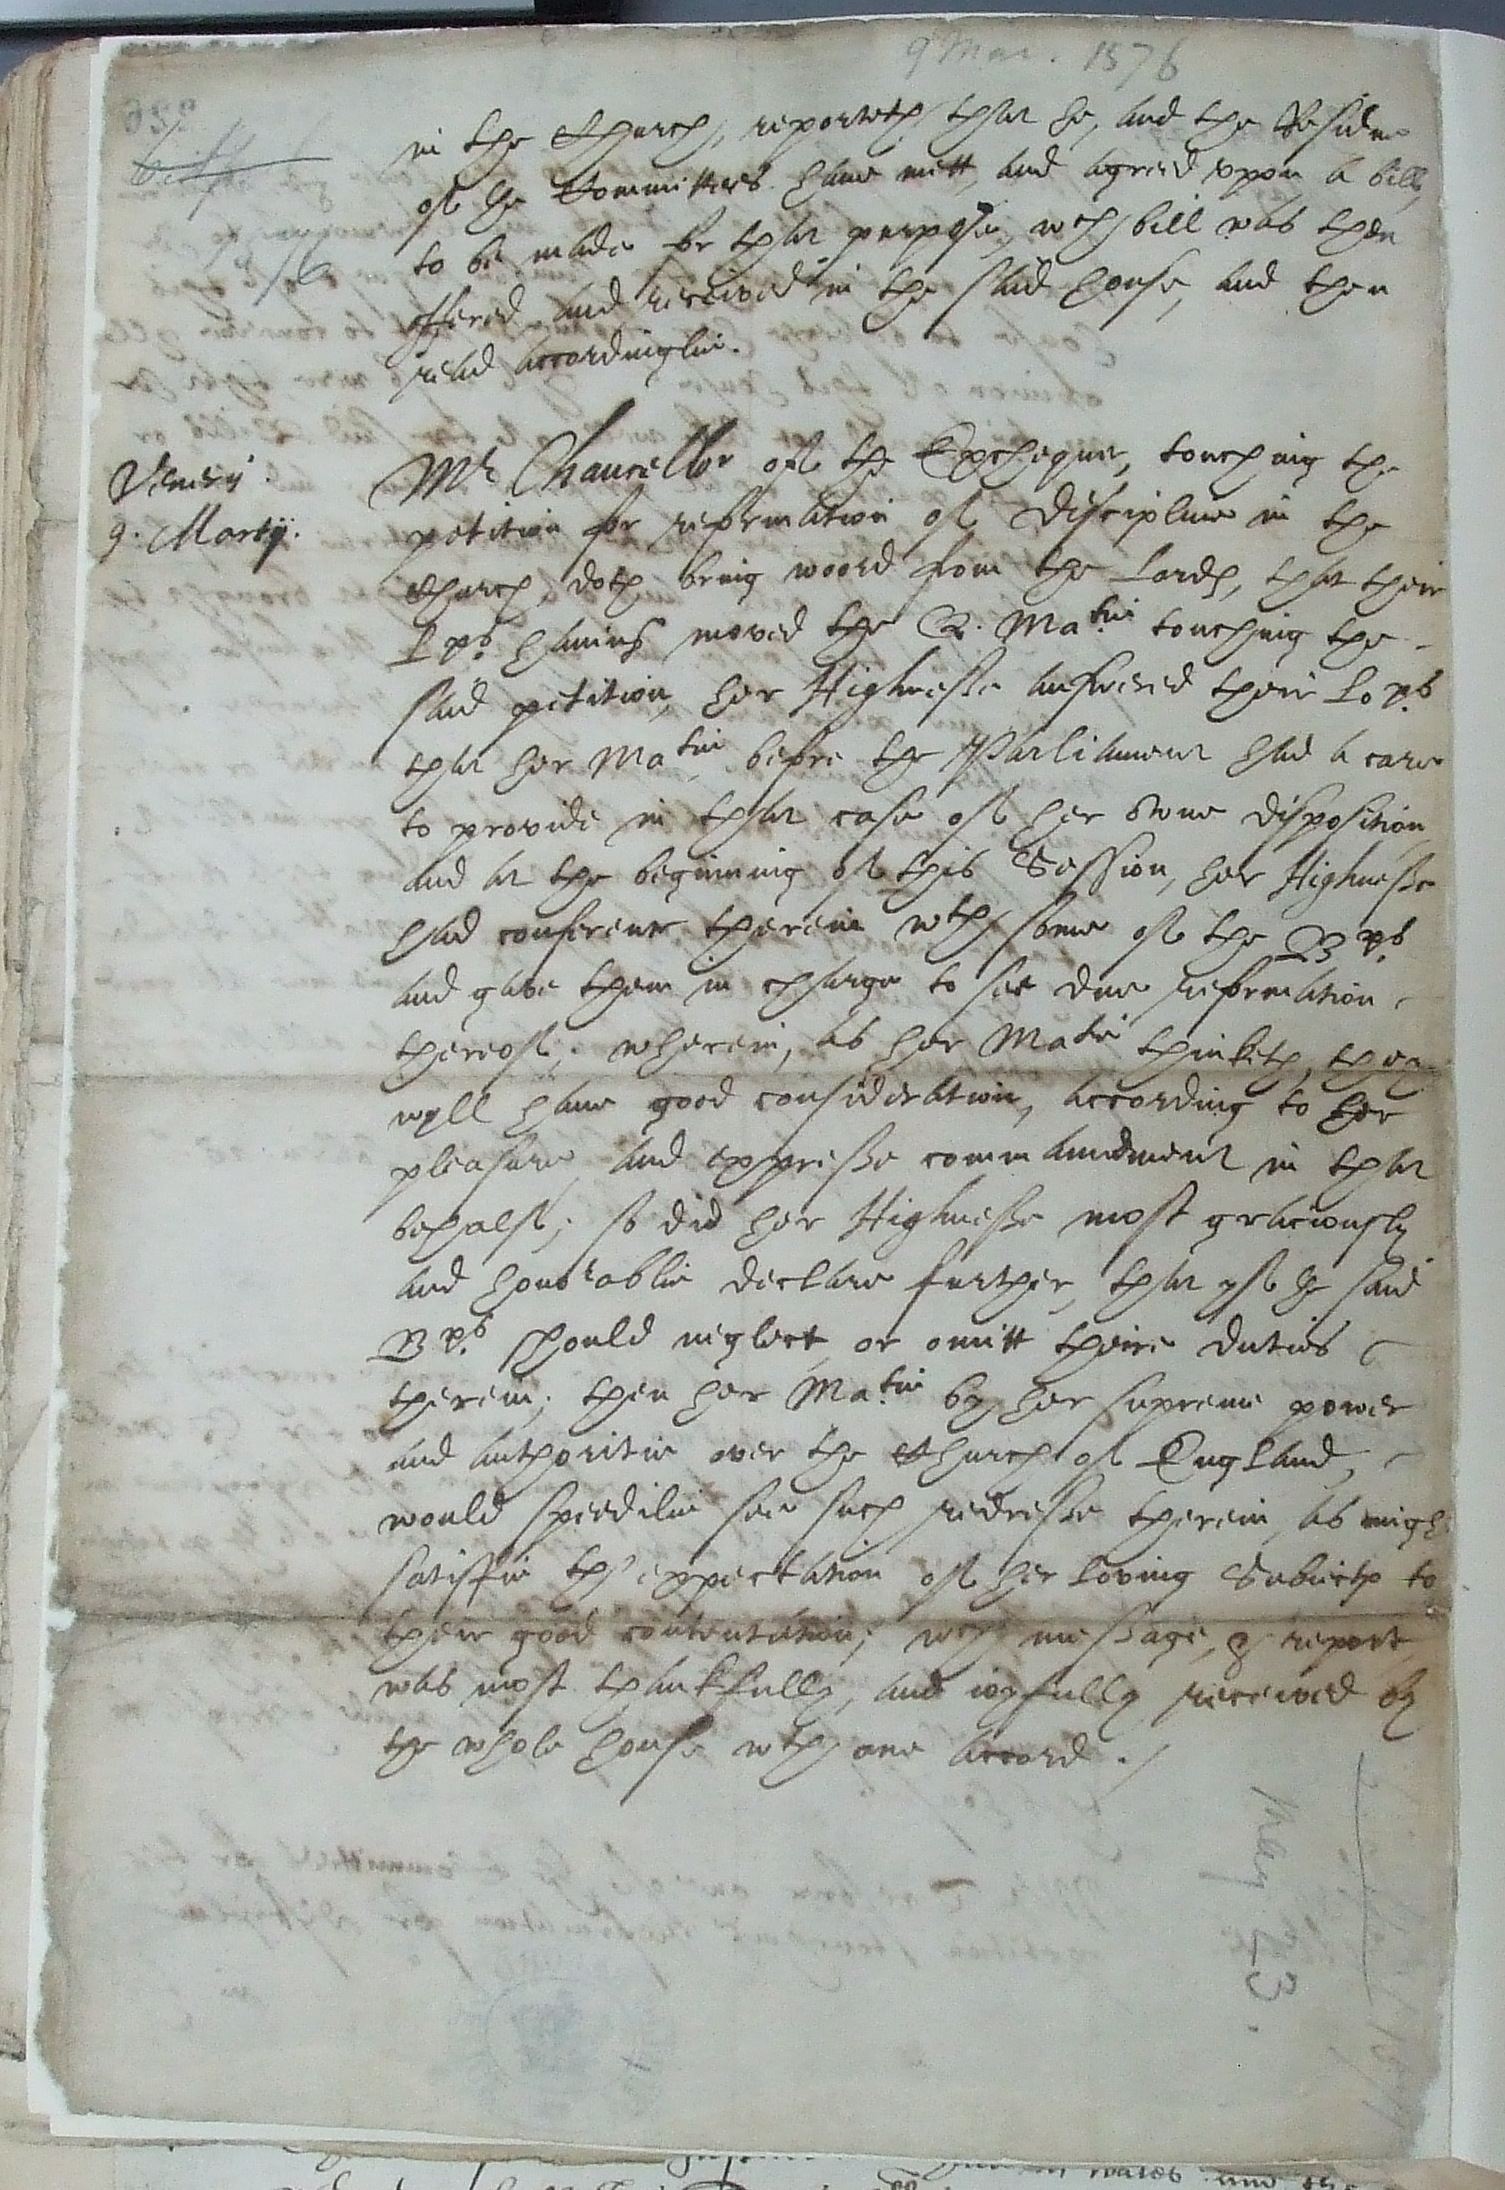 9 Mar. 1576
in the Church, reporteth that he, and the Residue
of the Committees have mett, and agreed upon a bill,
to be made for that purpose, wch bill was then
offered and received in the said house, and then
read accordinglie.
Veneris
9. Martij.
Mr Chancellor of the Exchequer, touching the
petition for reformation of Discipline in the
Church, doth bring woord from the Lords, that their
Lps. having moved the Q. Matie touching the
said petition, her Highnesse answered their Lo ps.
that her Matie before the Parliament had a care
to provide in that case of her owne disposition,
and at the beginning of this Session, her Highnesse
had conference therein wth some of the Bps.
and gave them in charge to see due reformation
thereof; wherein, as her Matie thinketh, they
wyll have good consideration, according to her
pleasure, and expresse commandment in that
behalf; so did her Highnesse most graciously
and honorablie declare further, that yf the said
Bps. should neglect, or omitt theire duties
therein; then her Matie by her supreme power
and authoritie over the Church of England,
would speedilie see such redresse therein, as might
satisfie th'expectation of her loving Subiects to
their good contentation; wch message, & report
was most thankfully, and ioyfully received by
the whole house wth one accord ./
May 23.